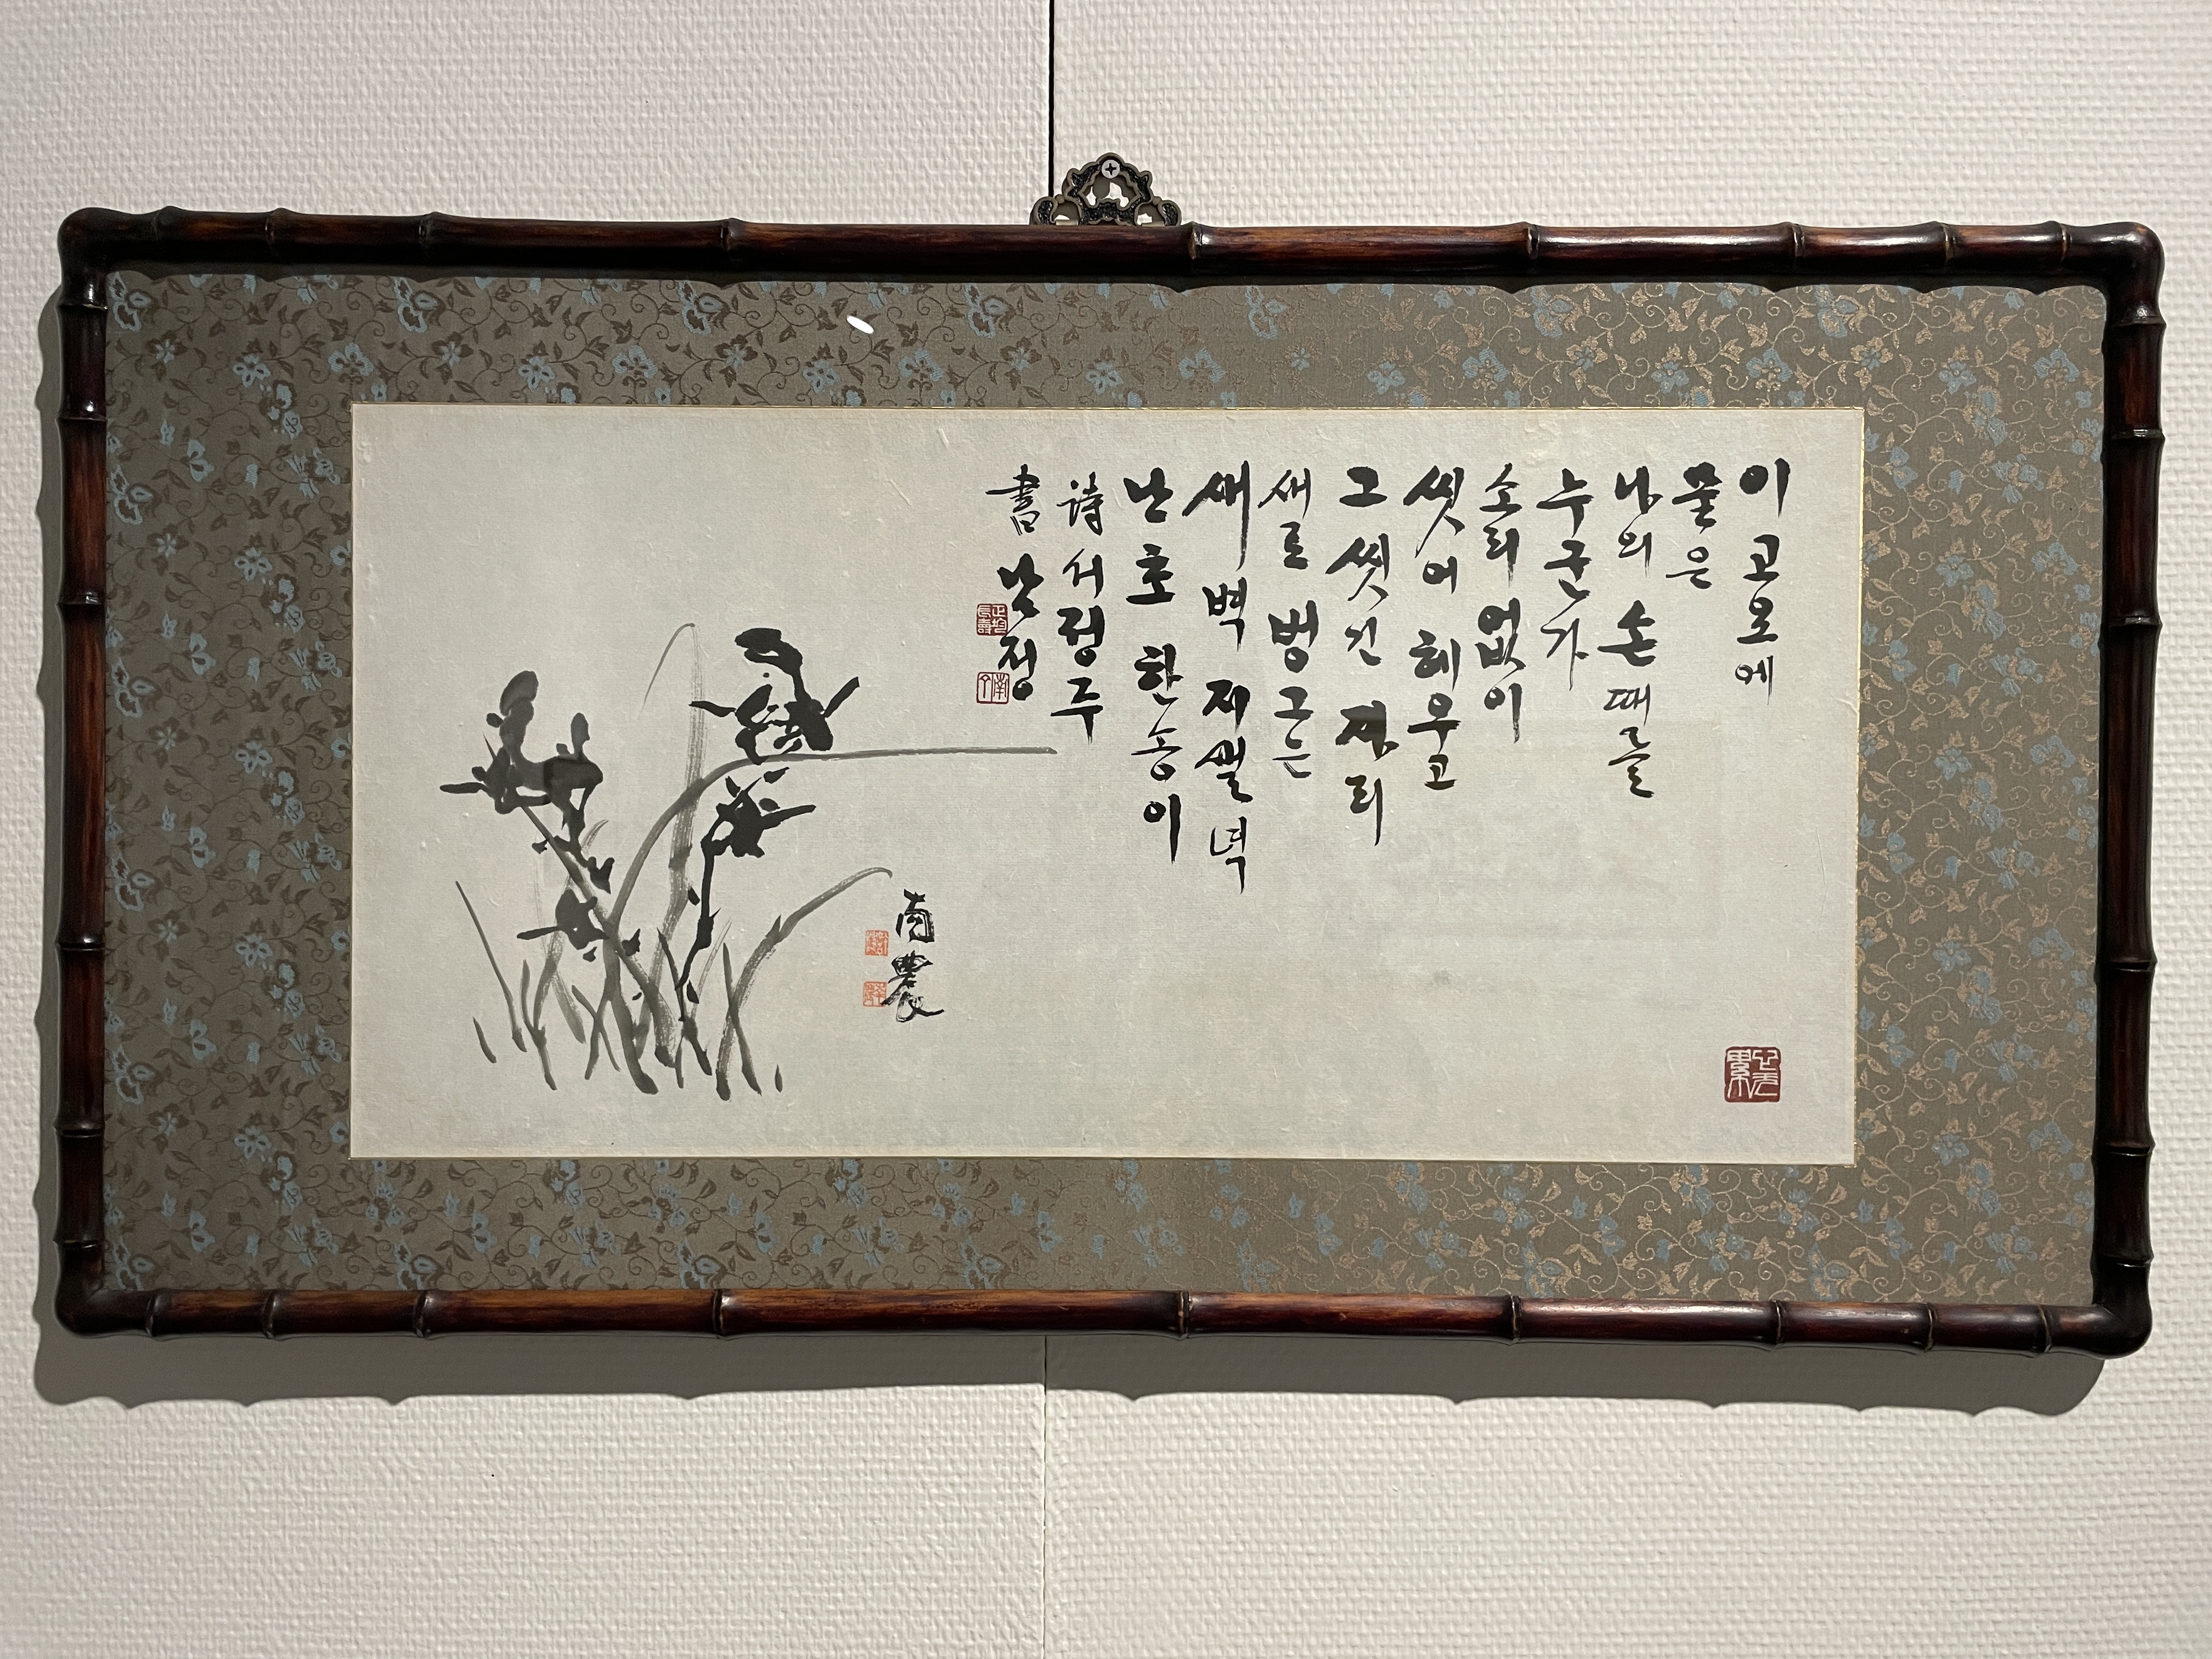 이 고요에
묻은
나의 손때를
누군가
소리 없이
씻어 헤우고
그 씻긴 자리
새로 벙그는
새벽 지샐녘
난초 한 송이
詩 서정주
書 남정
南農